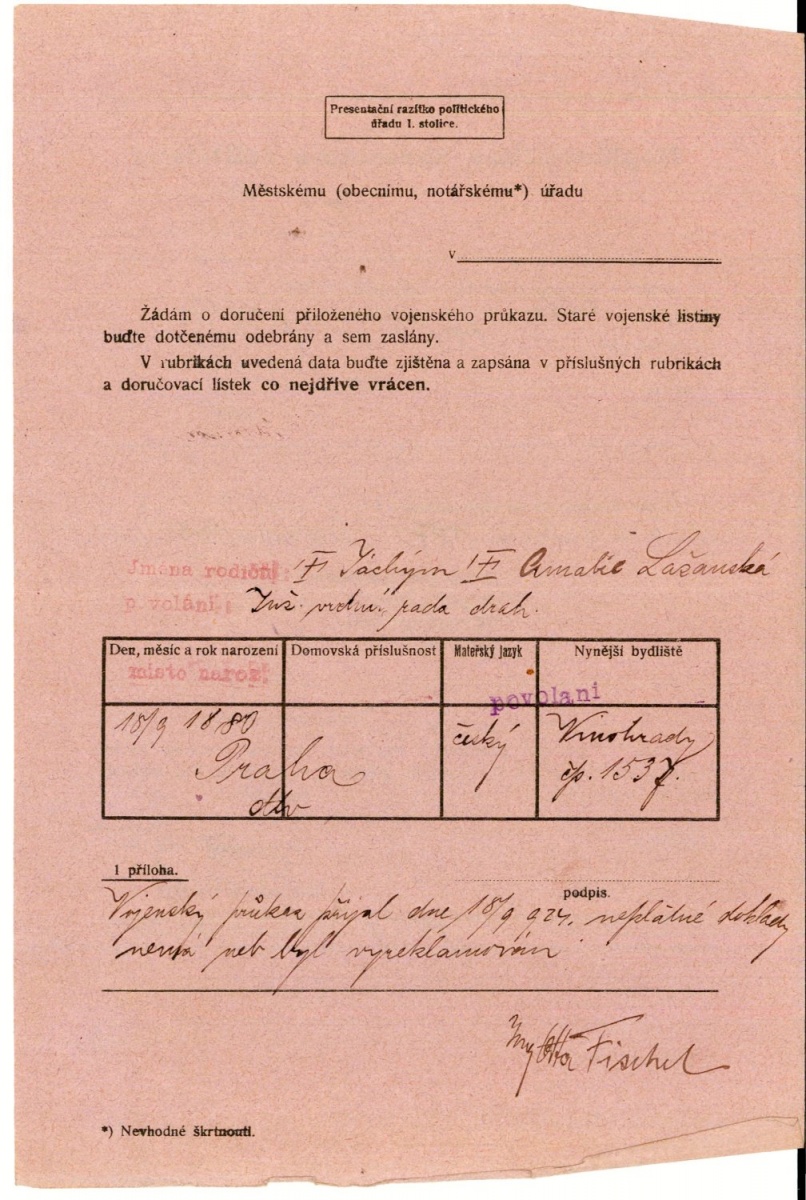 Presentační razítko politického
úřadu I. stolice.
Městskému (obecnímu, notářskému*) úřadu
v
Žádám o doručení přiloženého vojenského průkazu. Staré vojenské listiny
buďte dotčenému odebrány a sem zaslány.
V rubrikách uvedená data buďte zjištěna a zapsána v příslušných rubrikách
a doručovací lístek co nejdříve vrácen.
Jména rodičů: Jáchym Amalie Lažanská
povolání: Inž. vrchní rada drah.
Den, měsíc a rok narození Domovská příslušnost Mateřský jazyk Nynější bydliště
místo naroz.
povolani
18/9 1880 český Vinohrady
Praha čp. 1537.
1 příloha.
podpis.
Vojenský průkaz přijal dne 18/9 924. neplatné doklady
nemá neb byl vyreklamován
Ing Otta Fischel
*) Nevhodné škrtnouti.